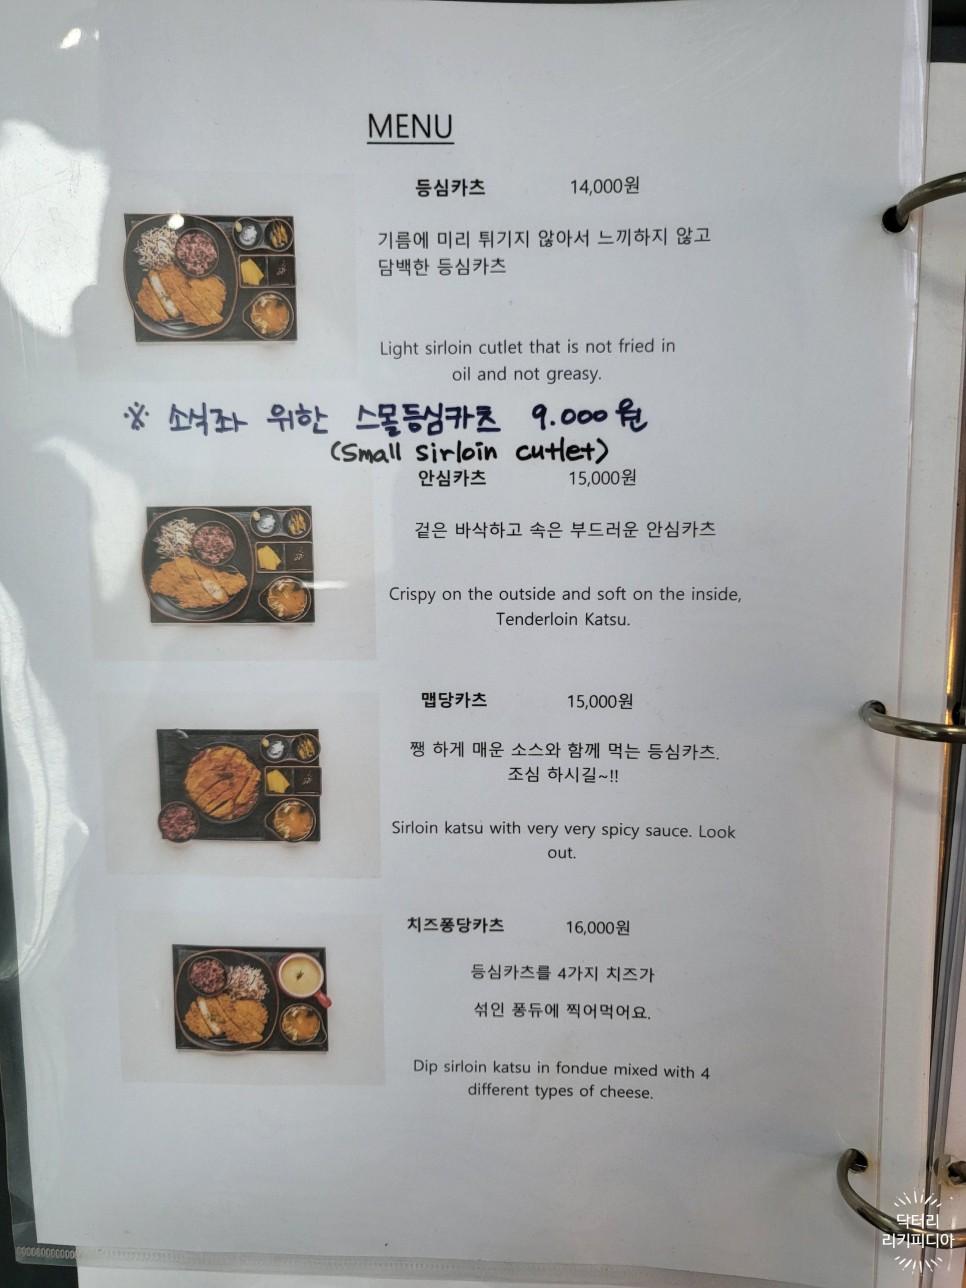 MENU
등심카츠 14,000원
기름에 미리 튀기지 않아서 느끼하지 않고
담백한 등심카츠
Light sirloin cutlet that is not fried in
oil and not greasy.
※ 소식좌 위한 스몰등심카츠 9.000원
(Small sirloin cutlet)
안심카츠 15,000원
겉은 바삭하고 속은 부드러운 안심카츠
Crispy on the outside and soft on the inside,
Tenderloin Katsu.
맵당카츠 15,000원
쨍 하게 매운 소스와 함께 먹는 등심카츠.
조심 하시길~!!
Sirloin katsu with very very spicy sauce. Look
out.
치즈퐁당카츠 16,000원
등심카츠를 4가지 치즈가
섞인 퐁듀에 찍어먹어요.
Dip sirloin katsu in fondue mixed with 4
different types of cheese.
닥터리
리키피디아